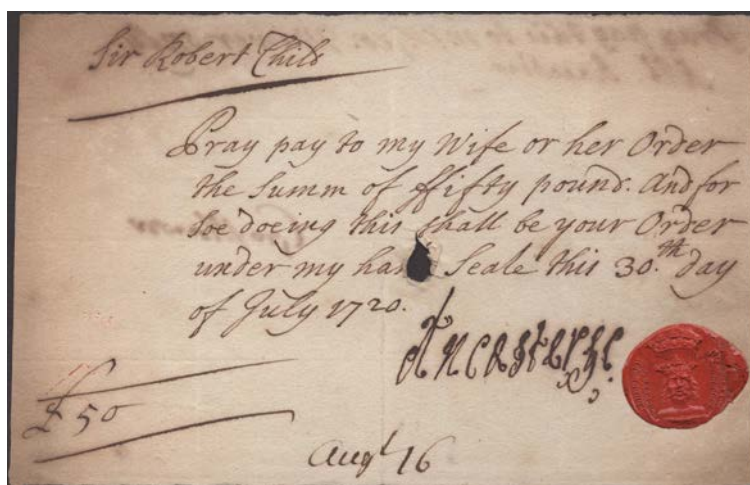 Sir Robert Child
Pray pay to my Wife or her Order
the Summ of ffifty pound. And for
soe doeing this shall be your Order
under my hand Seale this 30.th day
of July 1720.
Ancaster
£ 50
Augt 16